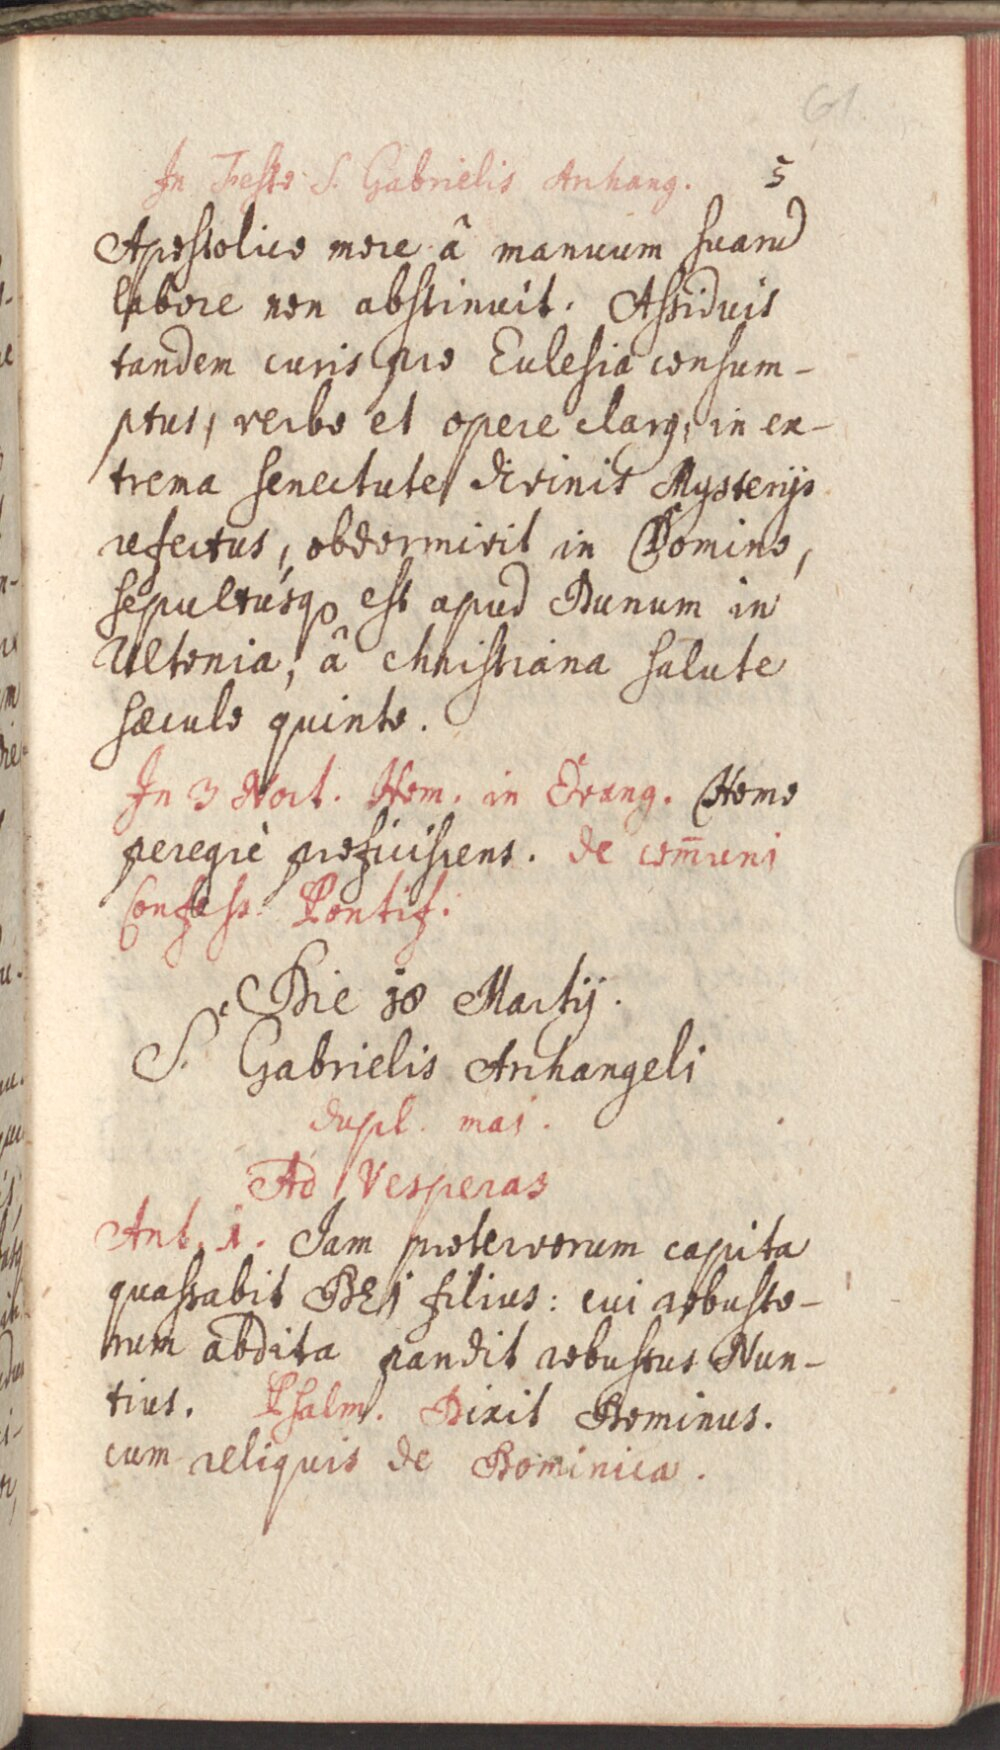 61.
In Festo S. Gabrielis Archang. 5
Apostolico more â manuum suarũ
labore non abstinuit. Assiduis
tandem curis pro Ecclesia consum-
ptus, verbo et opere clarq, in ex-
trema senectute divinis Mysterijs
refectus, obdormivit in Domino,
sepultúsq est apud Dunum in
Ultonia, â christiana salute
sæculo quinto.
In 3 Noct. Hom. in Evang. Homo
peregrè proficiscens. de com̅uni
Confess. Pontif.
Die 18 Martij.
S. Gabrielis Archangeli
dupl. mai.
Ad Vesperas
Ant. 1. Iam protervorum capita
quassabit DEI filius: cui robusto-
rum abdita pandit robustus Nun-
tius. Psalm. Dixit Dominus.
cum reliquis de Dominica.